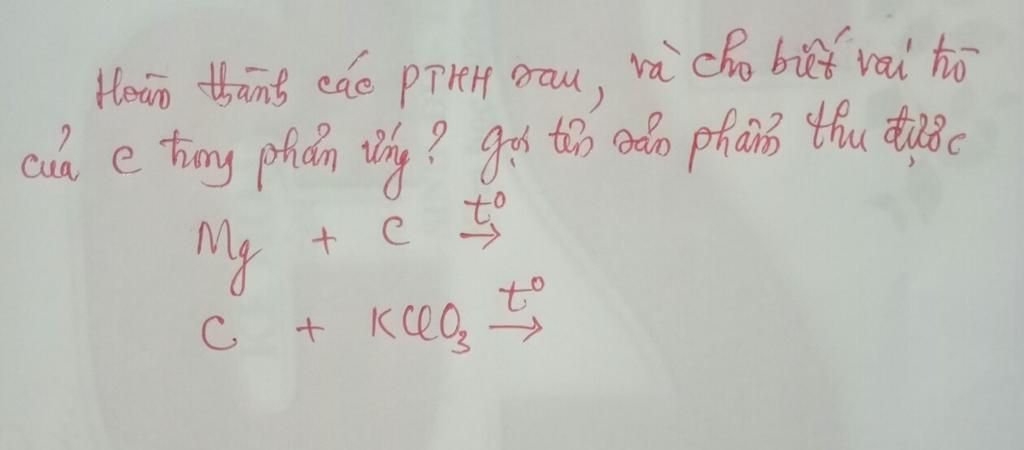 Hoàn thành các PTHH sau, và cho biết vai trò
của C trong phản ứng? gọi tên sản phẩm thu được
Mg + C t° →
C + KClO₃ t° →